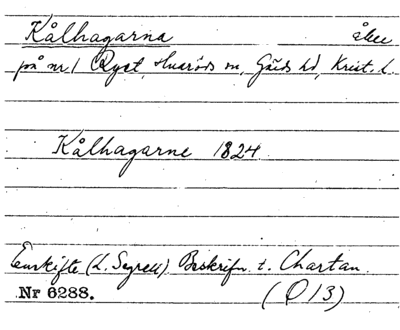 Kålhagarna åker
på nr 1 Ryet, Huaröds sn, Gärds hd, Krist. l.
Kålhagarne 1824
Enskifte (L. Segrell) Beskrifn t. Chartan.
Nr 6288. (Q 13)